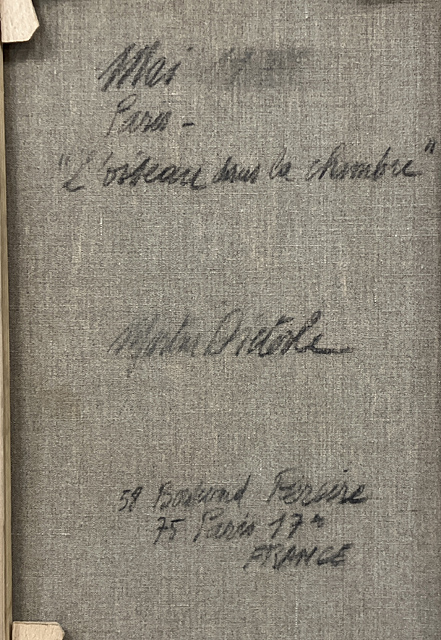 Mai
Paris -
"L'oiseau dans la chambre"
Martin Dieterle
59 Boulevard Pereire
75 Paris 17e
FRANCE